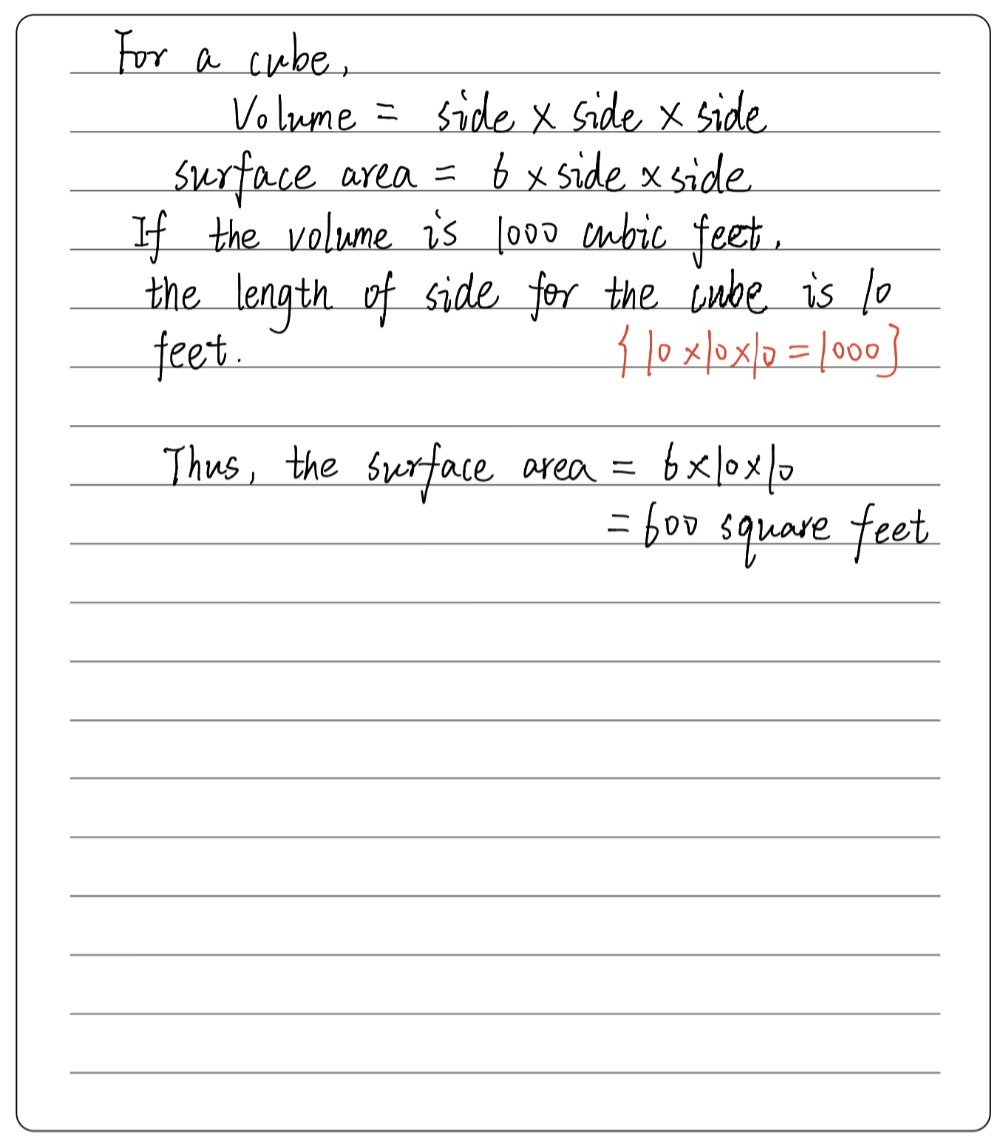 For a cube,
Volume = side × side × side
surface area = 6 × side × side
If the volume is 1000 cubic feet,
the length of side for the cube is 10
feet. {10 × 10 × 10 = 1000}
Thus, the surface area = 6 × 10 × 10
= 600 square feet